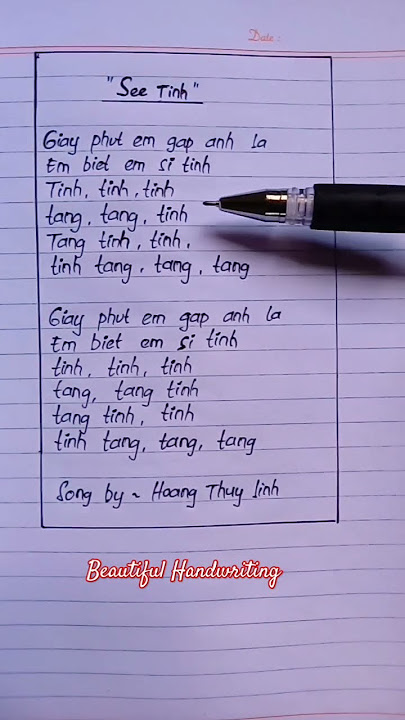 Date :
"See Tinh"
Giay phut em gap anh la
Em biet em si tinh
Tinh, tinh, tinh
tang, tang, tinh
Tang tinh, tinh,
tinh tang, tang, tang
Giay phut em gap anh la
Em biet em si tinh
tinh, tinh, tinh
tang, tang tinh
tang tinh, tinh
tinh tang, tang, tang
Song by ~ Hoang Thuy linh
Beautiful Handwriting